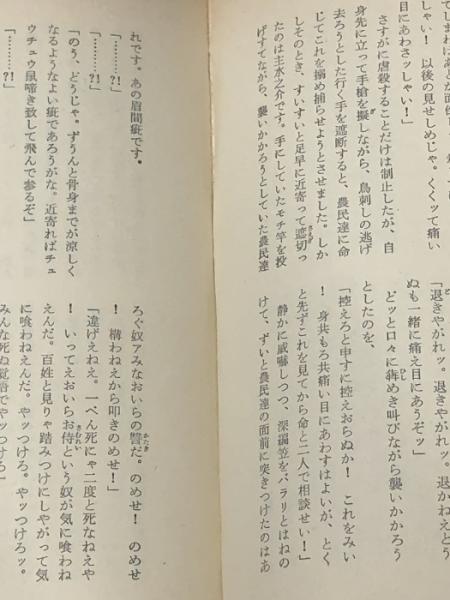 てしまえばあとが面倒じ
しゃい！　以後の見せしめじゃ。くくッて痛い
目にあわさッしゃい！」
さすがに虐殺することだけは制止したが、自
身先に立って手槍を擬しながら、鳥刺しの逃げ
去ろうとした行く手を遮断すると、農民達に命
じてこれを搦め捕らせようとさせました。しか
しそのとき、すいすいと足早に近寄って遮切っ
たのは主水之介です。手にしていたモチ竿を投
げすてながら、襲いかかろうとしていた農民達
「退きやがれッ。退きやがれッ。退かねえとう
ぬも一緒に痛え目にあうぞッ」
どッと口々に犇めき叫びながら襲いかかろう
としたのを、
「控えろと申すに控えおらぬか！　これをみい
！　身共もろ共痛い目にあわすはよいが、とく
と先ずこれを見てから命と二人で相談せい！」
静かに威嚇しつつ、深編笠をパラリとはねの
けて、ずいと農民達の面前に突きつけたのはあ
れです。あの眉間疵です。
「………?!」
「………?!」
「のう、どうじゃ。ずうんと骨身までが涼しく
なるようなよい疵であろうがな。近寄ればチュ
ウチュウ鼠啼き致して飛んで参るぞ」
「………?!」
ろぐ奴アみなおいらの讐だ。のめせ！　のめせ
！　構わねえから叩きのめせ！」
「違げえねえ。一ぺん死にゃ二度と死なねえや
！　いってえおいらお侍という奴が気に喰わね
えんだ。百姓と見りゃ踏みつけにしやがって気
に喰わねえんだ。やッつけろ。やッつけろッ。
みんな死ぬ覚悟でやッつけろ」